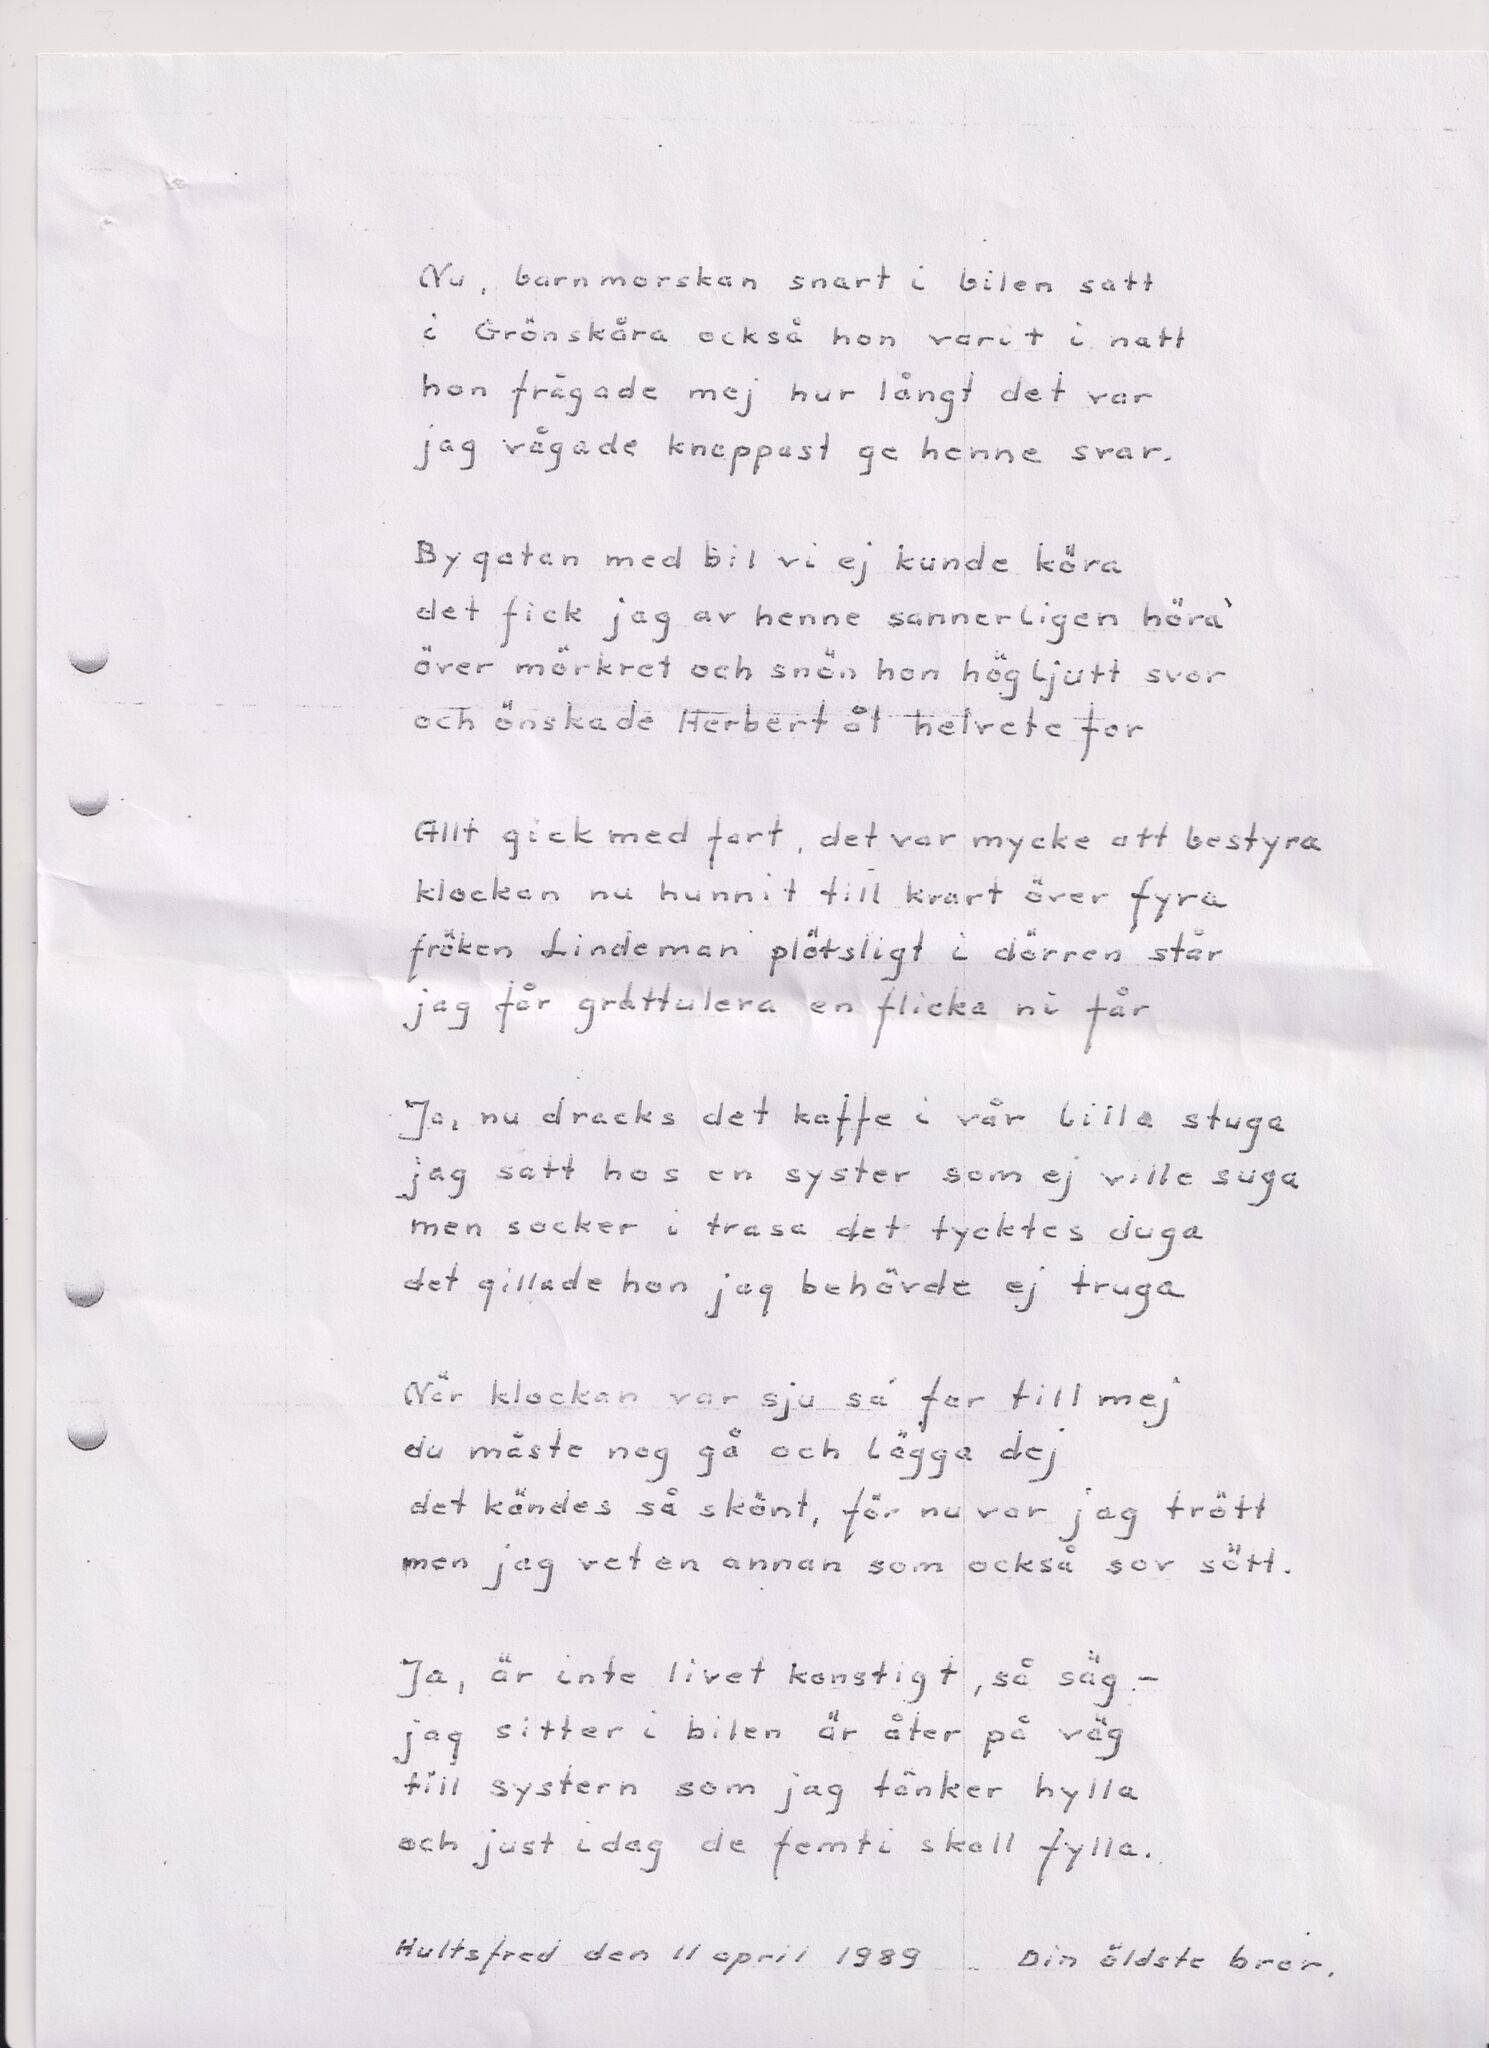 Nu, barnmorskan snart i bilen satt
i Grönskåra också hon varit i natt
hon frågade mej hur långt det var
jag vågade knappast ge henne svar.
Bygatan med bil vi ej kunde köra
det fick jag av henne sannerligen höra
över mörkret och snön hon högljutt svor
och önskade Herbert åt helvete for
Allt gick med fart, det var mycke att bestyra
klockan nu hunnit till kvart över fyra
fröken Lindeman plötsligt i dörren står
jag får grattulera en flicka ni får
Ja, nu dracks det kaffe i vår lilla stuga
jag satt hos en syster som ej ville suga
men socker i trasa det tycktes duga
det gillade hon jag behövde ej truga
När klockan var sju sa far till mej
du måste nog gå och lägga dej
det kändes så skönt, för nu var jag trött
men jag vet en annan som också sov sött.
Ja, är inte livet konstigt, så säg -
jag sitter i bilen är åter på väg
till systern som jag tänker hylla
och just idag de femti skall fylla.
Hultsfred den 11 april 1989 Din äldste bror.